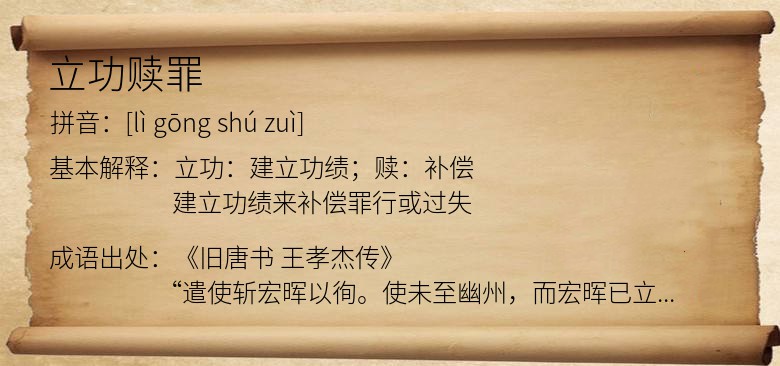 立功赎罪
拼音：[lì gōng shú zuì]
基本解释：立功：建立功绩；赎：补偿
建立功绩来补偿罪行或过失
成语出处：《旧唐书 王孝杰传》
“遣使斩宏晖以徇。使未至幽州，而宏晖已立...